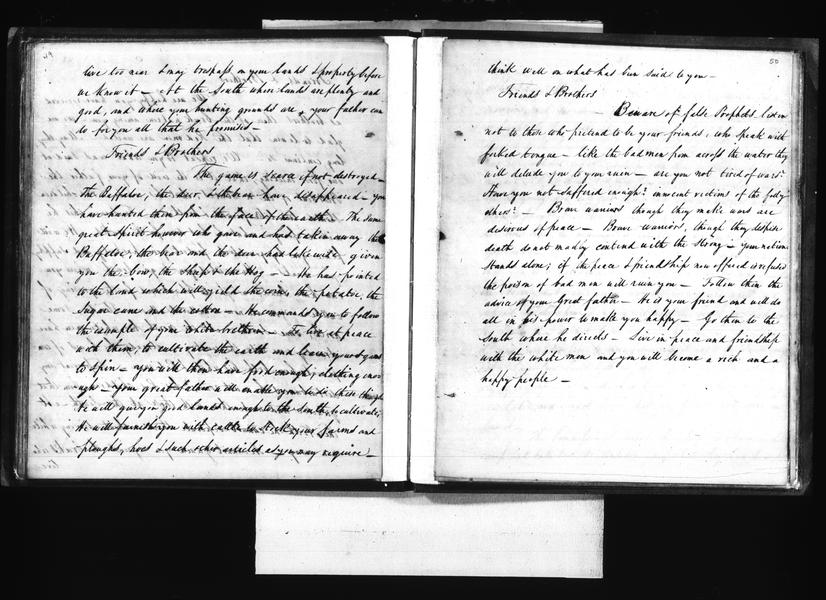 49
live too near & may trespass on your lands & property before
we know it — At the South where lands are plenty and
good, and where your hunting grounds are, your father can
do for you all that he promises —
Friends & Brothers
The game is scarce if not destroyed —
the Buffaloe, the deer, & the bear have disappeared — you
have hunted them from the face of the earth — The same
great Spirit however who gave and has taken away the
Buffaloe, the bear and the deer has likewise given
you the Cow, the Sheep & the Hog — He has pointed
to the land which will yield the corn, the potatoe, the
Sugar cane and the cotton — He commands you to follow
the example of your white brethern — To live at peace
with them, to cultivate the earth and learn your squaws
to Spin — you will then have food enough, clothing enou
gh — your great father will enable you to do these things
He will give you good lands enough to the South, to cultivate;
He will furnish you with cattle to Stock your farms and
ploughs, hoes & such other articles as you may require —
50
think well on what has been said to you —
Friends & Brothers
Beware of false Prophets. listen
not to those who pretend to be your friends, who speak with
forked tongue — like the bad men from across the water they
will delude you to your ruin — are you not tired of wars?
Have you not suffered enough? innocent victims of the folly of
others? — Brave warriors though they make wars are
desirous of peace — Brave warriors, though they despise
death do not madly contend with the Strong — your nation
Stands alone; if the peace & friendship now offered is refused
the poison of bad men will ruin you — Follow then the
advice of your Great father — He is your friend and will do
all in his power to make you happy — Go then to the
South where he directs — Live in peace and friendship
with the white men and you will become a rich and a
happy people —